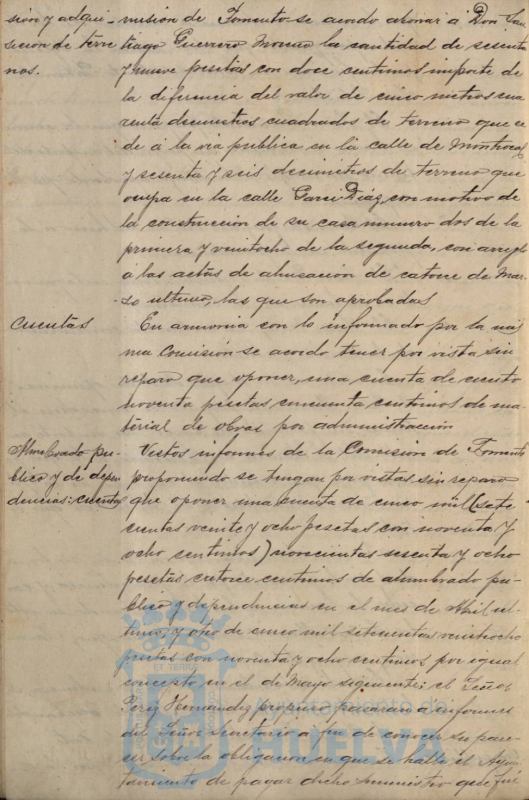 sión y adqui-
sicion de terre
nos.
misión de Fomento se acordo abonar á Don San
tiago Guerrero Moreno la cantidad de sesenta
y nueve pesetas con doce centimos importe de
la diferencia del valor de cinco metros cua
renta decimetros cuadrados de terreno que ce
de á la via publica en la calle de Montrocal
y sesenta y seis decimetros de terreno que
ocupa en la calle Garci Diaz, con motivo de
la construcción de su casa numero dos de la
primera y veintocho de la segunda, con arreglo
á las actas de alineación de catorce de Mar-
zo ultimo, las que son aprobadas
Cuentas
En armonia con lo informado por la mis
ma Comisión se acordo tener por vista sin
reparo que oponer, una cuenta de ciento
noventa pesetas cincuenta centimos de ma
terial de obras por administracción
Alumbrado pu-
blico y de depen
dencias: cuentas
Vistos informes de la Comision de Fomento
proponiendo se tengan por vistas sin reparo
que oponer una cuenta de cinco mil (sete
cientas veinte y ocho pesetas con noventa y
ocho centimos) novecientas sesenta y ocho
pesetas catorce centimos de alumbrado pu-
blico y dependencias en el mes de Abril ul-
timo, y otro de cinco mil setecientas veintiocho
pesetas con noventa y ocho centimos por igual
concepto en el de Mayo siguiente: el Señor
Perez Hernandez propuso pasaran a informe
del Señor Secretario a fin de conocer su pare-
cer sobre la obligación en que se halle el Ayun
tamiento de pagar dicho suministro que fué
Ayuntamiento de
HUELVA